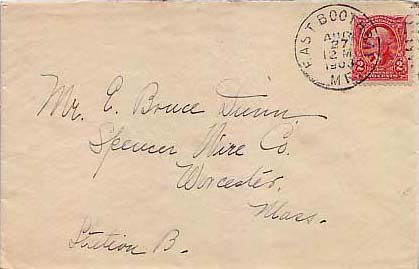 EAST BOOTH
AUG
27
12 M
1903
ME.
2 2
Mr. E. Bruce Dunn.
Spencer Wire Co.
Worcester,
Mass.
Station B.